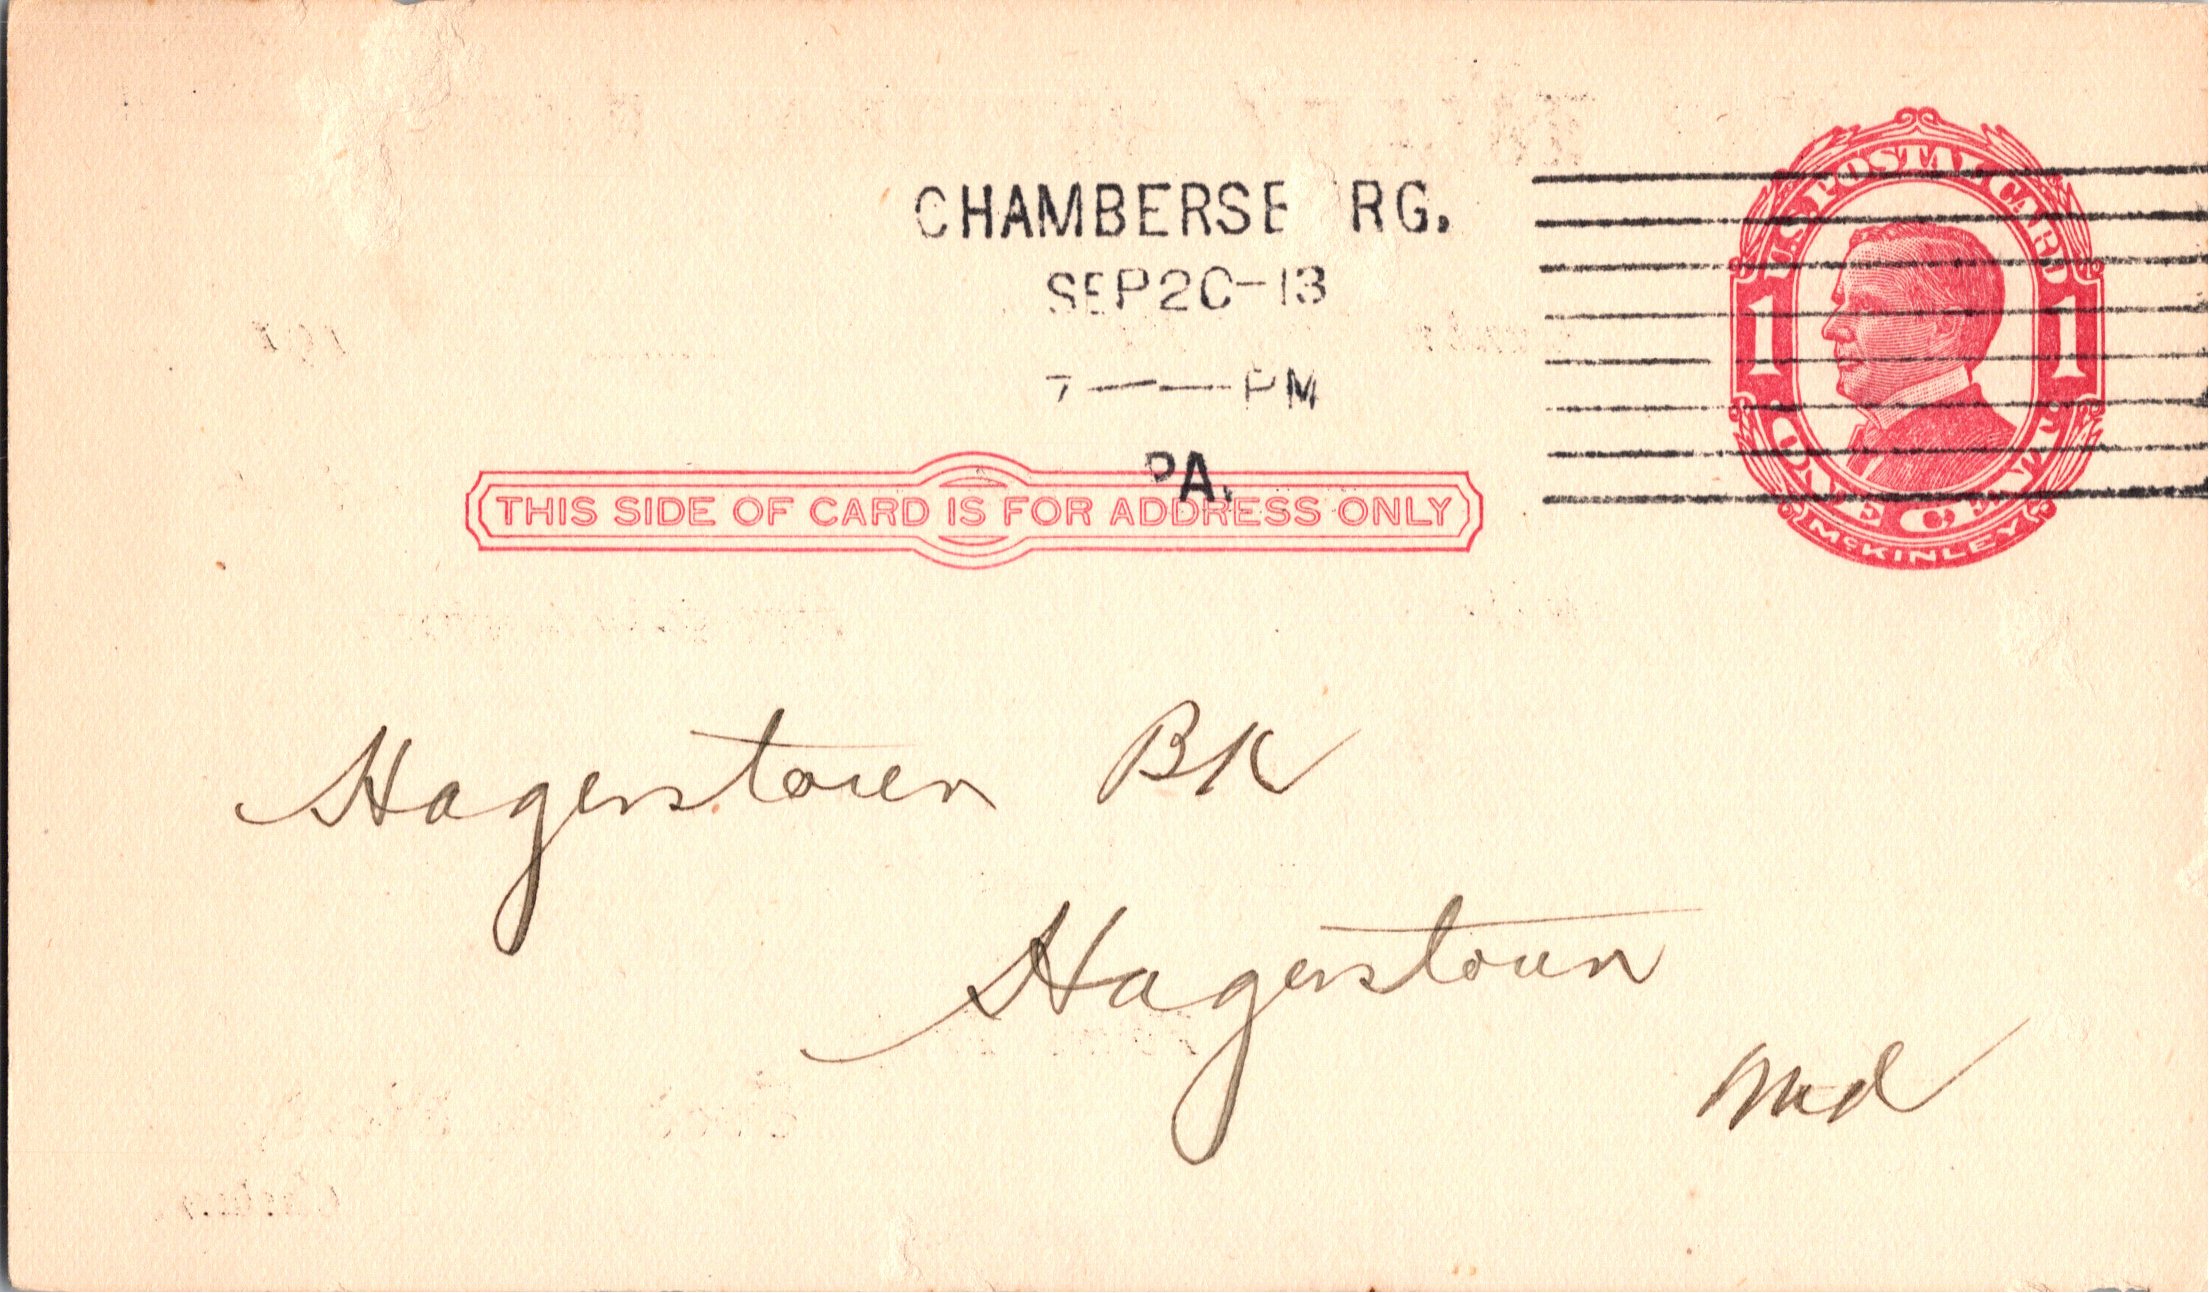 CHAMBERSB RG.
SEP 20-13
7 — PM
PA.
U.S. POSTAL CARD
1 1
ONE CENT
McKINLEY
THIS SIDE OF CARD IS FOR ADDRESS ONLY
Hagerstown BK
Hagerstown
Md